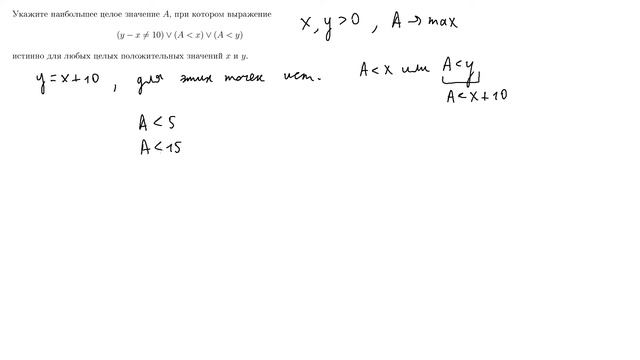 Укажите наибольшее целое значение A, при котором выражение
(y − x ≠ 10) ∨ (A < x) ∨ (A < y)
истинно для любых целых положительных значений x и y.
x, y > 0 , A → max
y = x + 10 , для этих точек ист.
A < x или A < y
A < x + 10
A < 5
A < 15